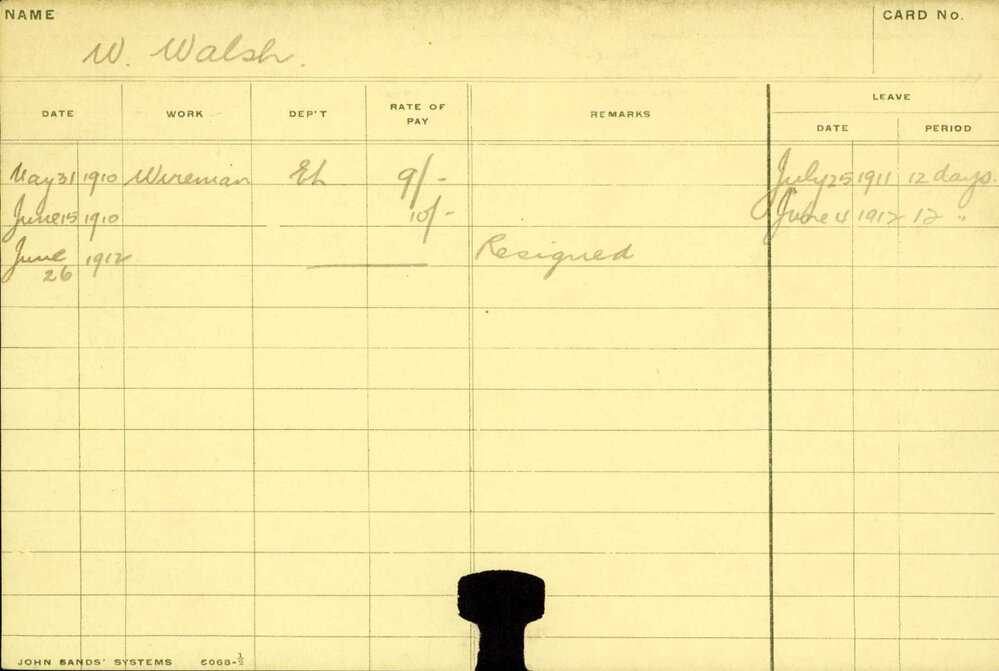 NAME CARD No.
W. Walsh.
LEAVE
DATE WORK DEP'T RATE OF PAY REMARKS DATE PERIOD
May 31 1910 Wireman 9/- July 25 1911 12 days.
June 15 1910 10/- June 4 1912 12 "
June 26 1912 Resigned
JOHN SANDS' SYSTEMS 5068-½